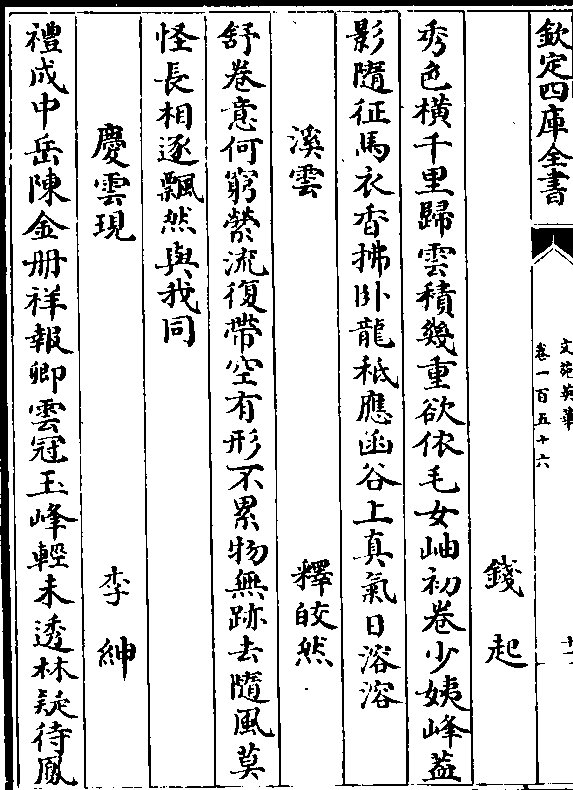 欽定四庫全書
文苑英華
卷一百五十六
錢起
秀色橫千里歸雲積幾重欲依毛女岫初卷少姨峰蓋
影隨征馬衣香拂卧龍秪應函谷上真氣日溶溶
溪雲 釋皎然
舒卷意何窮縈流復帶空有形不累物無跡去隨風莫
怪長相逐飄然與我同
慶雲現 李紳
禮成中岳陳金册祥報卿雲冠玉峰輕未透林疑待鳳